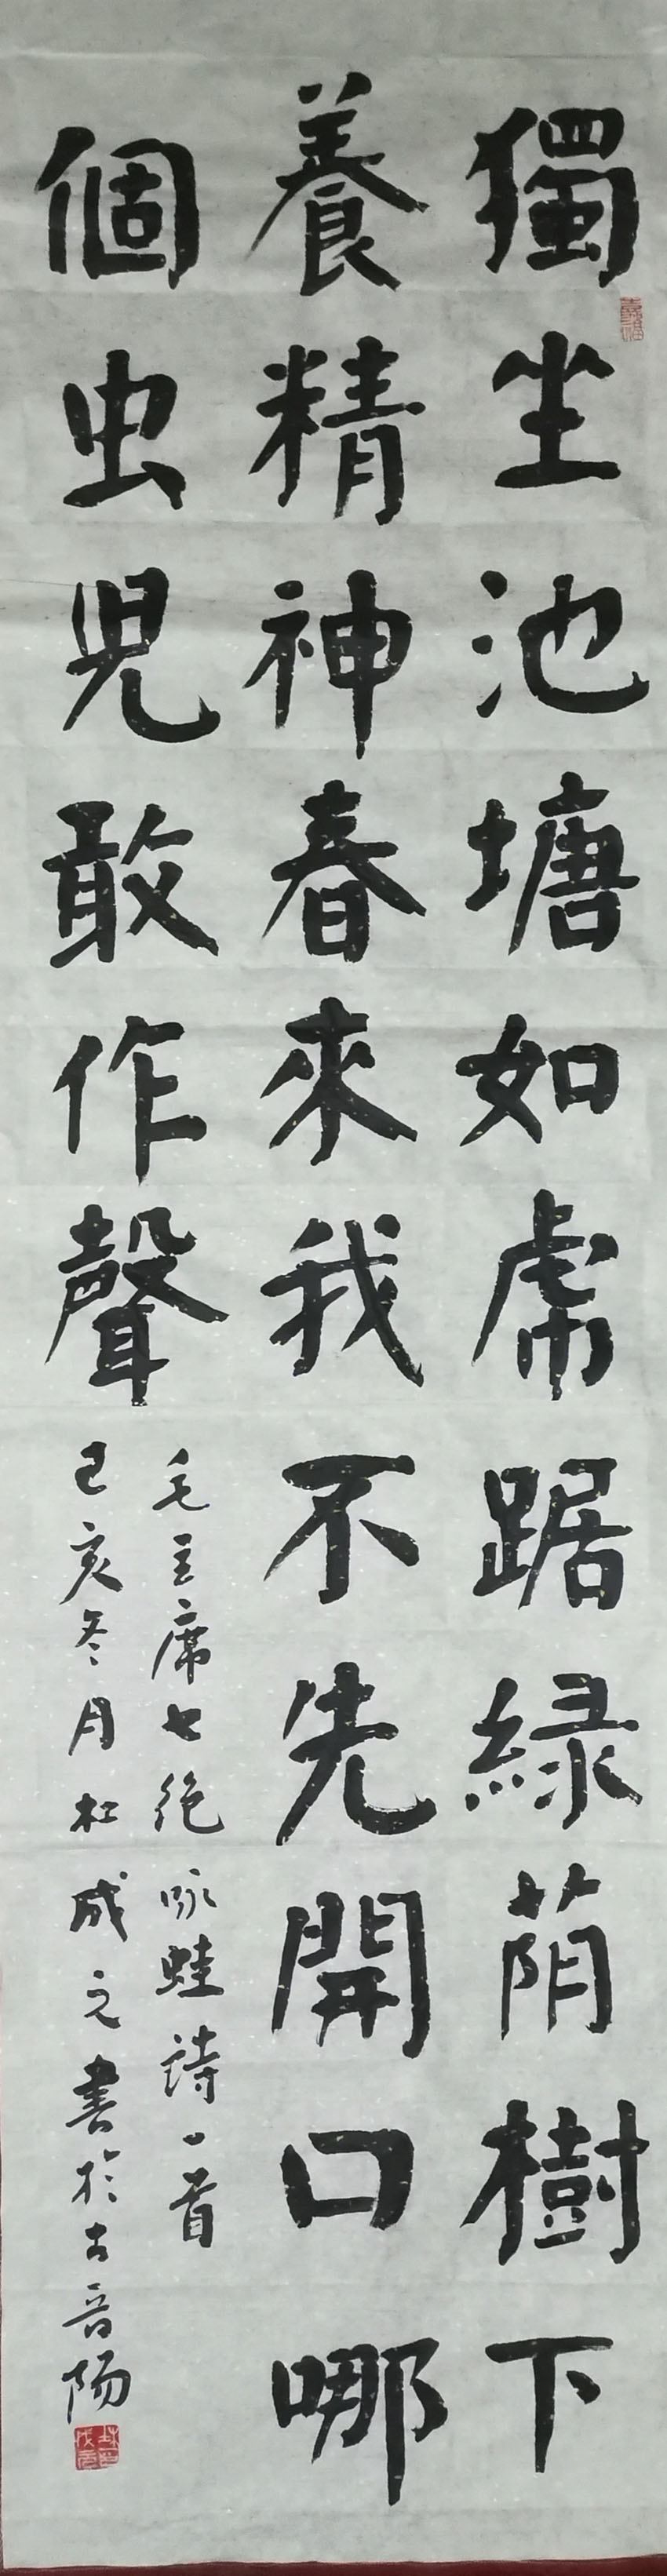 獨坐池塘如虎踞綠蔭樹下
養精神春來我不先開口哪
個虫兒敢作聲
毛主席七绝咏蛙詩一首
己亥冬月杜成之書於古晋陽